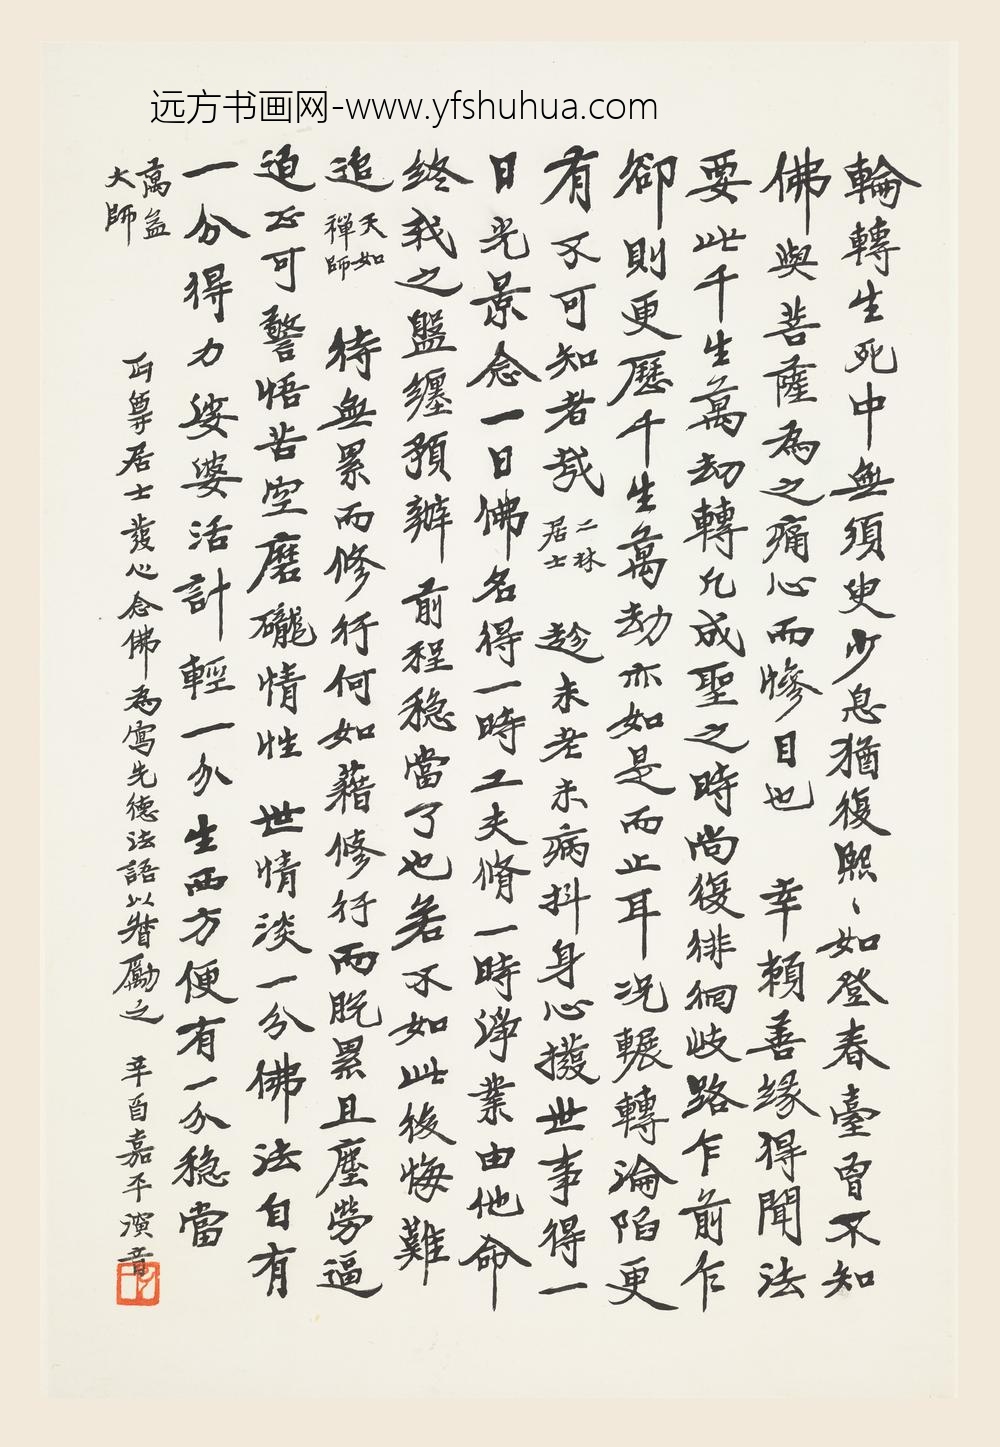 远方书画网-www.yfshuhua.com
輪轉生死中無須臾少息猶復熙、如登春臺曾不知
佛與菩薩為之痛心而慘目也 幸賴善緣得聞法
要此千生萬劫轉凡成聖之時尚復徘徊岐路乍前乍
卻則更歷千生萬劫亦如是而止耳況輾轉淪陷更
有不可知者哉 二林居士 趁未老未病抖身心撥世事得一
日光景念一日佛名得一時工夫脩一時淨業由他命
終我之盤纏預辦前程穩當了也若不如此後悔難
追 天如禪師 待無累而修行何如藉修行而脫累且塵勞逼
迫正可警悟苦空磨礲情性 世情淡一分佛法自有
一分得力娑婆活計輕一分生西方便有一分穩當
蕅益大師
丏尊居士發心念佛為寫先德法語以督勵之 辛酉嘉平演音